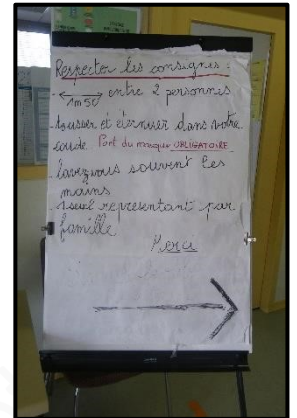 Respecter les consignes :
- ↔ entre 2 personnes
1m50
- tousser et éternuer dans votre
coude Port du masque OBLIGATOIRE
- lavez vous souvent les
mains
- 1 seul représentant par
famille
Merci